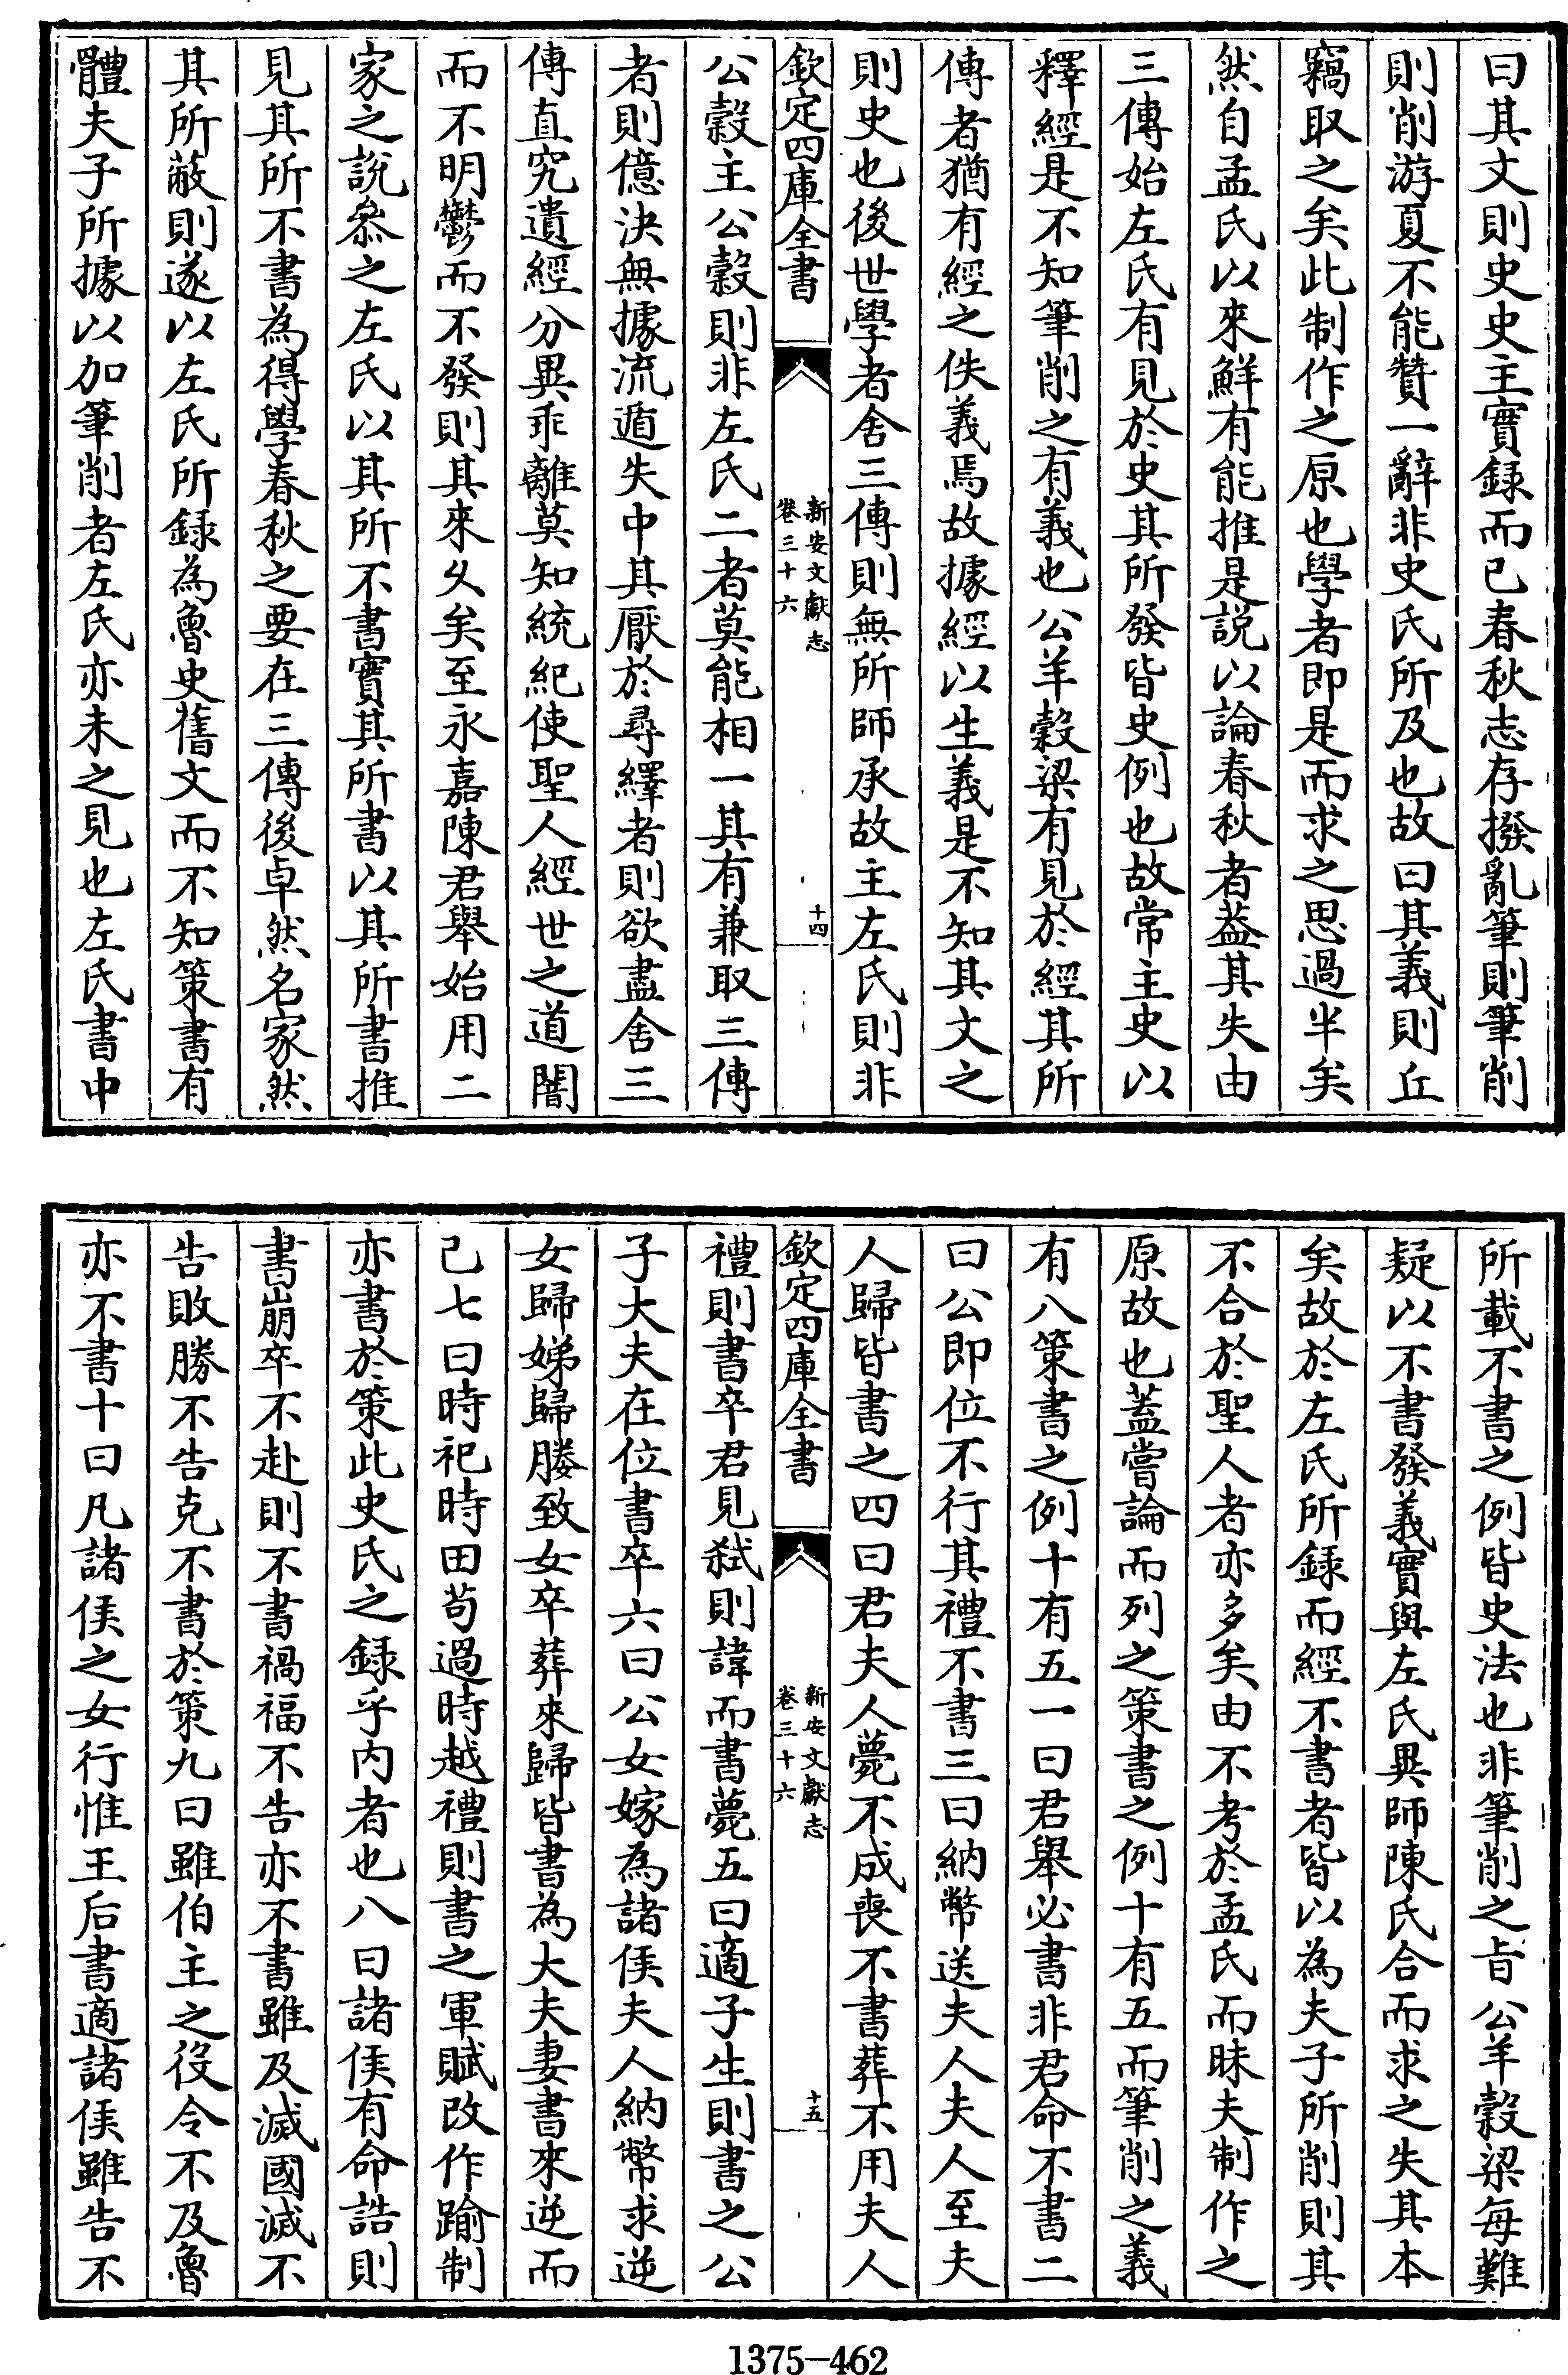 曰其文則史史主實録而已春秋志存撥亂筆則筆削
則削游夏不能贊一辭非史氏所及也故曰其義則丘
竊取之矣此制作之原也學者即是而求之思過半矣
然自孟氏以來鮮有能推是説以論春秋者葢其失由
三傳始左氏有見於史其所發皆史例也故常主史以
釋經是不知筆削之有義也公羊穀梁有見於經其所
傳者猶有經之佚義焉故據經以生義是不知其文之
則史也後世學者舍三傳則無所師承故主左氏則非
欽定四庫全書
新安文獻志
卷三十六
十四
公穀主公穀則非左氏二者莫能相一其有兼取三傳
者則億決無據流遁失中其厭於尋繹者則欲盡舍三
傳直究遺經分異乖離莫知統紀使聖人經世之道闇
而不明鬱而不發則其來乆矣至永嘉陳君舉始用二
家之説叅之左氏以其所不書實其所書以其所書推
見其所不書為得學春秋之要在三傳後卓然名家然
其所蔽則遂以左氏所録為魯史舊文而不知策書有
體夫子所據以加筆削者左氏亦未之見也左氏書中
所載不書之例皆史法也非筆削之旨公羊穀梁每難
疑以不書發義實與左氏異師陳氏合而求之失其本
矣故於左氏所録而經不書者皆以為夫子所削則其
不合於聖人者亦多矣由不考於孟氏而昧夫制作之
原故也蓋嘗論而列之策書之例十有五而筆削之義
有八策書之例十有五一曰君舉必書非君命不書二
曰公即位不行其禮不書三曰納幣送夫人夫人至夫
人歸皆書之四曰君夫人薨不成喪不書葬不用夫人
欽定四庫全書
新安文獻志
卷三十六
十五
禮則書卒君見弑則諱而書薨五曰適子生則書之公
子大夫在位書卒六曰公女嫁為諸侯夫人納幣求逆
女歸娣歸媵致女卒葬來歸皆書為大夫妻書來逆而
已七曰時祀時田苟過時越禮則書之軍賦改作踰制
亦書於策此史氏之録乎内者也八曰諸侯有命誥則
書崩卒不赴則不書禍福不告亦不書雖及滅國滅不
告敗勝不告克不書於策九曰雖伯主之役令不及魯
亦不書十曰凡諸侯之女行惟王后書適諸侯雖告不
1375-462